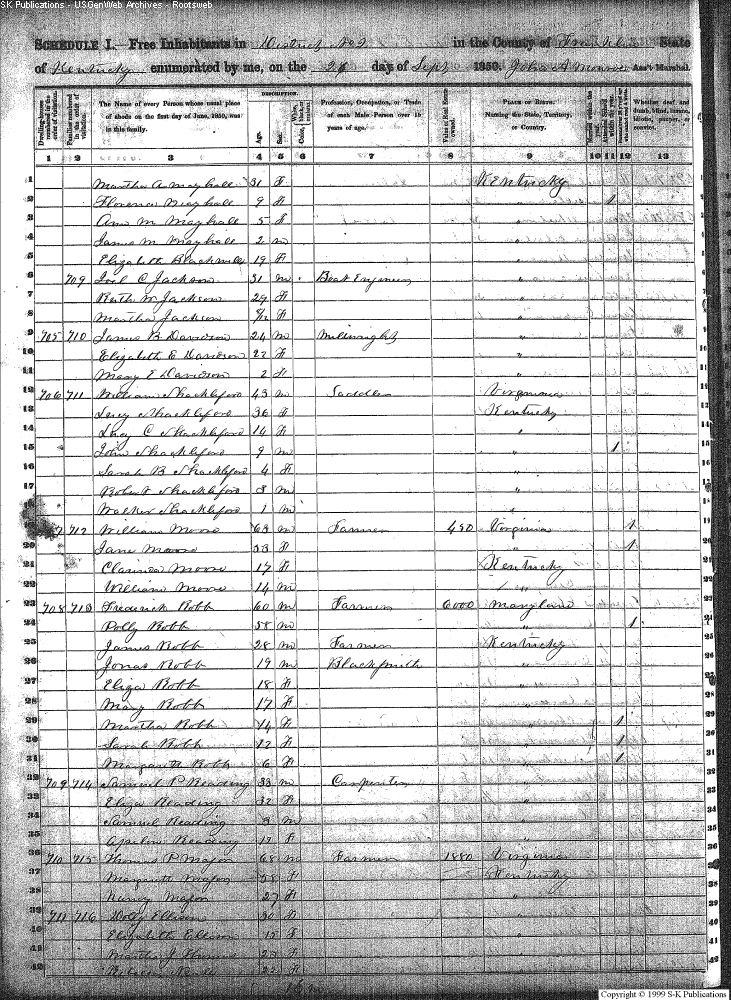 SK Publications - USGenWeb Archives - Rootsweb
SCHEDULE I.—Free Inhabitants in District No 2 in the County of Franklin State
of Kentucky enumerated by me, on the 26 day of Sept 1850. John A Monroe Ass't Marshal.
Dwelling-houses numbered in the order of visitation.
Families numbered in the order of visitation.
The Name of every Person whose usual place of abode on the first day of June, 1850, was in this family.
DESCRIPTION.
Age.
Sex.
Color, White, black, or mulatto.
Profession, Occupation, or Trade of each Male Person over 15 years of age.
Value of Real Estate owned.
PLACE OF BIRTH. Naming the State, Territory, or Country.
Married within the year.
Attended School within the year.
Whether deaf and dumb, blind, insane, idiotic, pauper, or convict.
1 2 3 4 5 6 7 8 9 10 11 12 13
1 Martha A Mayhall 31 F Kentucky
2 Florence Mayhall 9 F " 1
3 Ann M Mayhall 5 F "
4 James M Mayhall 2 M "
5 Elizabeth 19 F "
6 709 Joel C Jackson 31 M Boat Engineer "
7 Ruth W Jackson 29 F "
8 Martha Jackson F "
9 705 710 James B Davidson 24 M Millwright "
10 Elizabeth E Davidson 22 F "
11 Mary E Davidson 2 F "
12 706 711 William Shackleford 43 M Saddler Virginia
13 Lucy Shackleford 36 F Kentucky
14 Lucy C Shackleford 14 F "
15 John Shackleford 9 M " 1
16 Sarah B Shackleford 4 F "
17 Robert Shackleford 3 M "
18 Walker Shackleford 1 M "
19 712 William Moore 63 M Farmer 490 Virginia 1
20 Jane Moore 53 F " 1
21 Clarinda Moore 17 F Kentucky
22 William Moore 14 M "
23 708 713 Frederick Robb 60 M Farmer 6000 Maryland
24 Polly Robb 58 " 1
25 James Robb 28 M Farmer Kentucky
26 Jonas Robb 19 M Blacksmith "
27 Eliza Robb 18 F "
28 Mary Robb 17 F "
29 Martha Robb 14 F " 1
30 Sarah Robb 12 F " 1
31 Margarett Robb 6 F " 1
32 709 714 Samuel P Reading 33 M Carpenter "
33 Eliza Reading 32 F "
34 Samuel Reading 3 M "
35 Reading F "
36 710 715 Thomas P Major 68 M Farmer 1880 Virginia
37 Margarett Major 58 F Kentucky
38 Nancy Major 27 F "
39 711 716 Dolly Ellison 50 F "
40 Elizabeth Ellison F "
41 Martha J F "
42 Rebecca F "
Copyright © 1999 S-K Publications